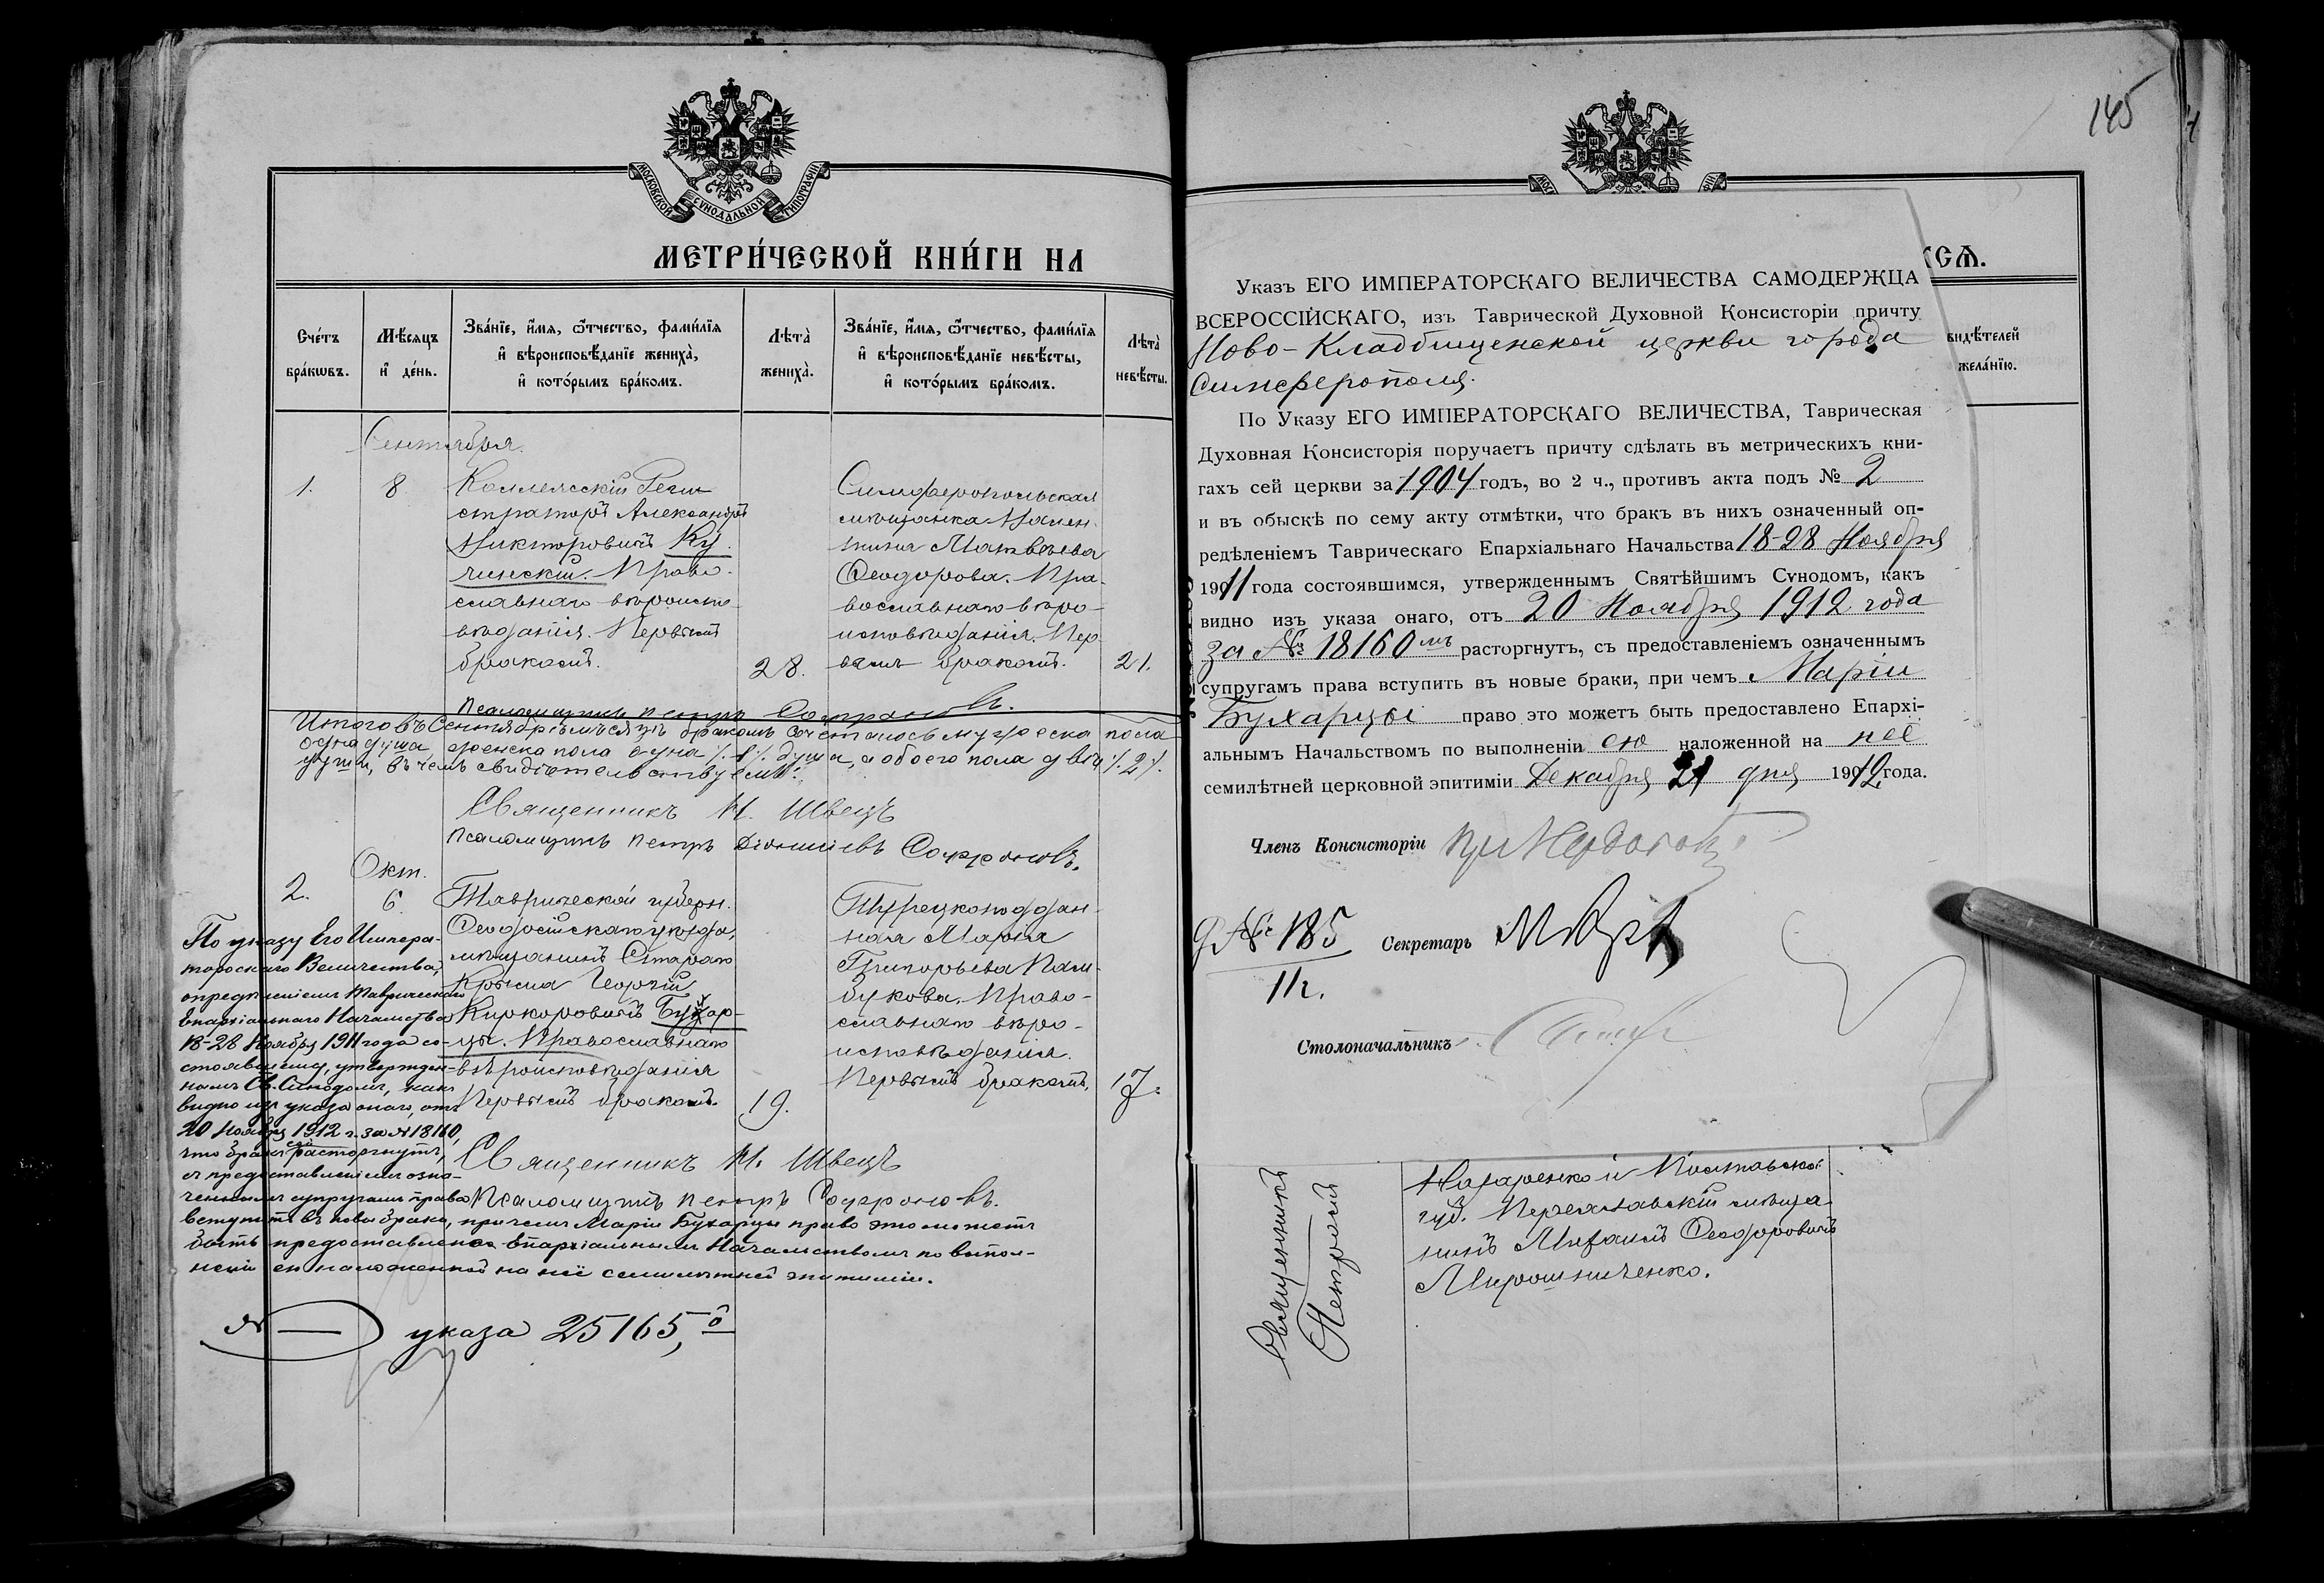 МОСКОВСКОЙ СѴНОДАЛЬНОЙ ТИПОГРАФІИ
МЕТРИ́ЧЕСКОЙ КНИ́ГИ НА
Сче́тъ бра́кѡвъ.
Мѣ́сяцъ и҆ де́нь.
Зва́нїе, и҆́мѧ, ѻ҆́тчество, фами́лїѧ
и҆ вѣроисповѣ́данїе жениха̀,
и҆ кото́рымъ бра́комъ.
Лѣта̀ жениха̀.
Зва́нїе, и҆́мѧ, ѻ҆́тчество, фами́лїѧ
и҆ вѣроисповѣ́данїе невѣ́сты,
и҆ кото́рымъ бра́комъ.
Лѣта̀ невѣ́сты.
Сентября.
1.
8
Коллежскій Реги
страторъ Александръ
Викторовичъ Ку
чинскій. Право-
славнаго вѣроиспо-
вѣданія. Первымъ
бракомъ.
28.
Симферопольская
мѣщанка Вален
тина Матвѣева
Ѳеодорова. Пра-
вославнаго вѣро-
исповѣданія. Пер-
вымъ бракомъ.
21.
Псаломщикъ Петръ Софроновъ.
Итого въ Сентябрѣ мѣсяцѣ бракомъ сочеталось мужеска пола
одна душа, женска пола одна /.1/. душа, а обоего пола двѣ /.2/.
души, въ чемъ свидѣтельствуемъ:
Священникъ Н. Швецъ
Псаломщикъ Петръ Діонисіевъ Софроновъ.
Окт.
2.
6.
Таврической губерн.
Ѳеодосійскаго уѣзда,
мѣщанинъ Стараго
Крыма Георгій
Киркоровичъ Бухар-
цы. Православнаго
вѣроисповѣданія
Первымъ бракомъ.
19.
Турецкоподдан-
ная Марія
Григорьева Пам-
букова. Право-
славнаго вѣро-
исповѣданія.
Первымъ бракомъ.
17.
По указу Его Импера-
торскаго Величества,
опредѣленіемъ Таврическаго
Епархіальнаго Начальства
18-28 Ноября 1911 года со-
стоявшимся, утвержден-
нымъ Св. Синодомъ, какъ
видно изъ указа онаго, отъ
20 Ноября 1912 г. за № 18160,
что бракъ сей расторгнутъ,
съ предоставленіемъ озна-
ченнымъ супругамъ права
вступить въ новые браки, при чемъ Маріи Бухарцы право это можетъ
быть предоставлено Епархіальнымъ Начальствомъ по выпол-
неніи ею наложенной на неё семилѣтней эпитиміи.
Священникъ Н. Швецъ
Псаломщикъ Петръ Софроновъ.
№ — указа 25165,
145
СѦ.
видѣ́телей
жела́нїю.
Указъ ЕГО ИМПЕРАТОРСКАГО ВЕЛИЧЕСТВА САМОДЕРЖЦА
ВСЕРОССІЙСКАГО, изъ Таврической Духовной Консисторіи причту
Ново-Кладбищенской церкви города
Симферополя.
По Указу ЕГО ИМПЕРАТОРСКАГО ВЕЛИЧЕСТВА, Таврическая
Духовная Консисторія поручаетъ причту сдѣлать въ метрическихъ кни-
гахъ сей церкви за 1904 годъ, во 2 ч., противъ акта подъ № 2
и въ обыскѣ по сему акту отмѣтки, что бракъ въ нихъ означенный оп-
редѣленіемъ Таврическаго Епархіальнаго Начальства 18-28 Ноября
1911 года состоявшимся, утвержденнымъ Святѣйшимъ Сѵнодомъ, какъ
видно изъ указа онаго, отъ 20 Ноября 1912 года
за № 18160 мъ расторгнутъ, съ предоставленіемъ означеннымъ
супругамъ права вступить въ новые браки, при чемъ Маріи
Бухарцы право это можетъ быть предоставлено Епархі-
альнымъ Начальствомъ по выполненіи ею наложенной на нее
семилѣтней церковной эпитиміи Декабря 21 дня 1912 года.
Членъ Консисторіи
№ 185
11.
Секретарь
Столоначальникъ
Священникъ
Петръ
Назаренко и Полтавской
губ. Переяславскій мѣща-
нинъ Михаилъ Ѳеодоровичъ
Мирошниченко.